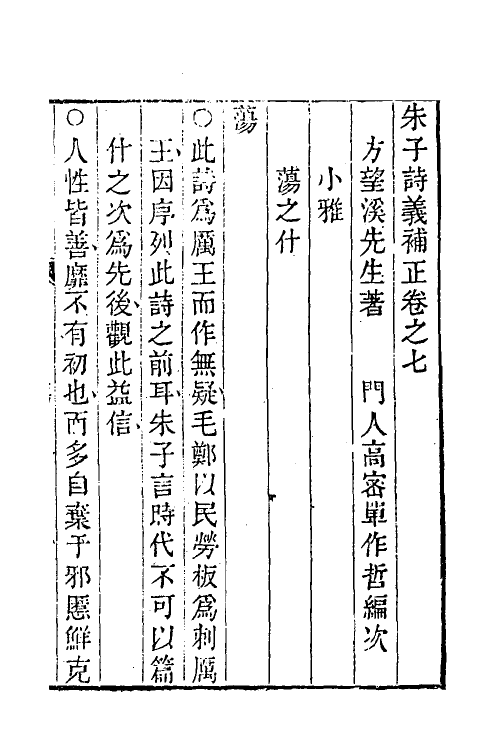 朱子詩義補正卷之七
方望溪先生著　　門人高密單作哲編次
小雅
蕩之什
蕩
○此詩爲厲王而作無疑毛鄭以民勞板爲刺厲
王因序列此詩之前耳朱子言時代不可以篇
什之次爲先後觀此益信
○人性皆善靡不有初也而多自棄于邪慝鮮克